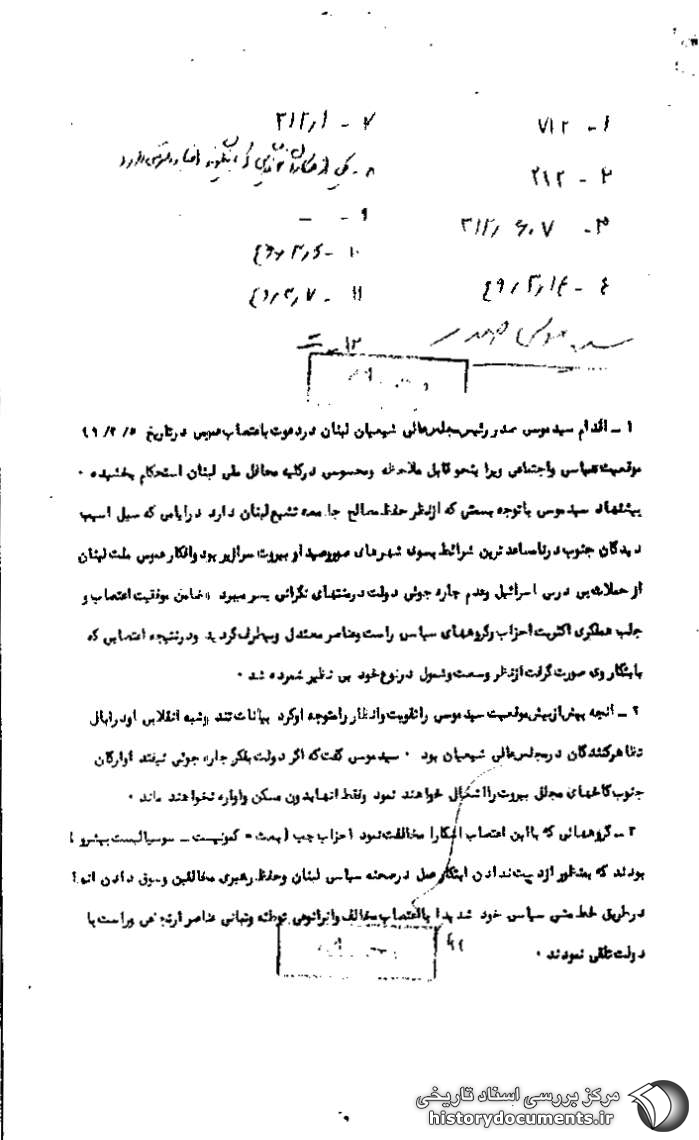 ۱ - ۷۱۲
۲ - ۲۱۲
۳ - ۳۱۲٫ ۶۰۷
۴ - ۴۹/۳/۱۴
سید موسی صدر
۷ - ۳۱۲٫۱
۸ - یکی از همکاران
۹ - -
۱۰ - ۴۹٫۳٫۶
۱۱ - ۴۹٫۳٫۷
۱۲ -
۱ - اقدام سید موسی صدر رئیس مجلس عالی شیعیان لبنان در دعوت باعتصاب عمومی در تاریخ ۴۹/۳/۵
موقعیت سیاسی و اجتماعی ویرا بنحو قابل ملاحظه ومحسوس در کلیه محافل ملی لبنان استحکام بخشیده ۰
پیشنهاد سید موسی با توجه بسعتی که از نظر حفظ مصالح جامعه تشیع لبنان دارد در ایامی که سیل اسیب
دیدگان جنوب در نامساعد ترین شرائط بسوی شهرهای صور وصیدا و بیروت سرازیر بود وافکار عمومی ملت لبنان
از حملات پی در پی اسرائیل وعدم چاره جوئی دولت در منتهای نگرانی بسر میبرد ضامن موفقیت اعتصاب و
جلب همفکری اکثریت احزاب وگروههای سیاسی راست وعناصر معتدل وبیطرف گردید ودر نتیجه اعتصابی که
بابتکار وی صورت گرفت از نظر وسعت وشمول در نوع خود بی نظیر شمرده شد ۰
۲ - انچه بیش از پیش موقعیت سید موسی را تقویت وانظار را متوجه او کرد بیانات تند وشبه انقلابی او در قبال
تظاهر کنندگان در مجلس عالی شیعیان بود ۰ سید موسی گفت که اگر دولت بفکر چاره جوئی نیفتد اوارگان
جنوب کاخهای مجلل بیروت را اشغال خواهند نمود وفقط انها بدون مسکن واواره نخواهند ماند ۰
۳ - گروههائی که با این اعتصاب اشکارا مخالفت نمود احزاب چپ (بعث - کمونیست - سوسیالیست پیشرو)
بودند که بمنظور از دست ندادن ابتکار عمل در صحنه سیاسی لبنان وحفظ رهبری مخالفین وسوق دادن انها
در طریق خط مشی سیاسی خود شدیدا با اعتصاب مخالف وانرا نوعی توطئه وتبانی عناصر ارتجاعی وراست با
دولت تلقی نمودند ۰
مرکز بررسی اسناد تاریخی
historydocuments.ir